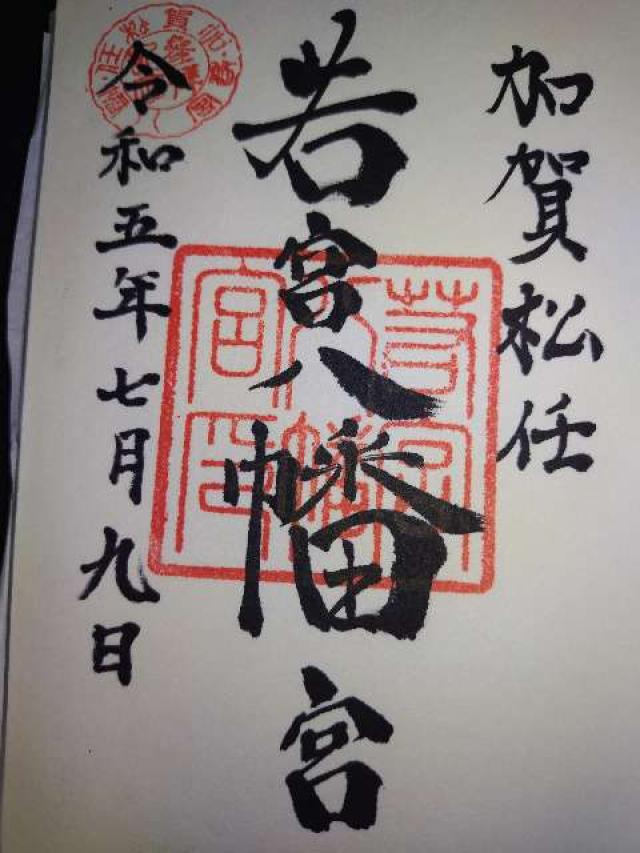 加賀松任
若宮八幡宮
令和五年七月九日
若宮八幡宮印